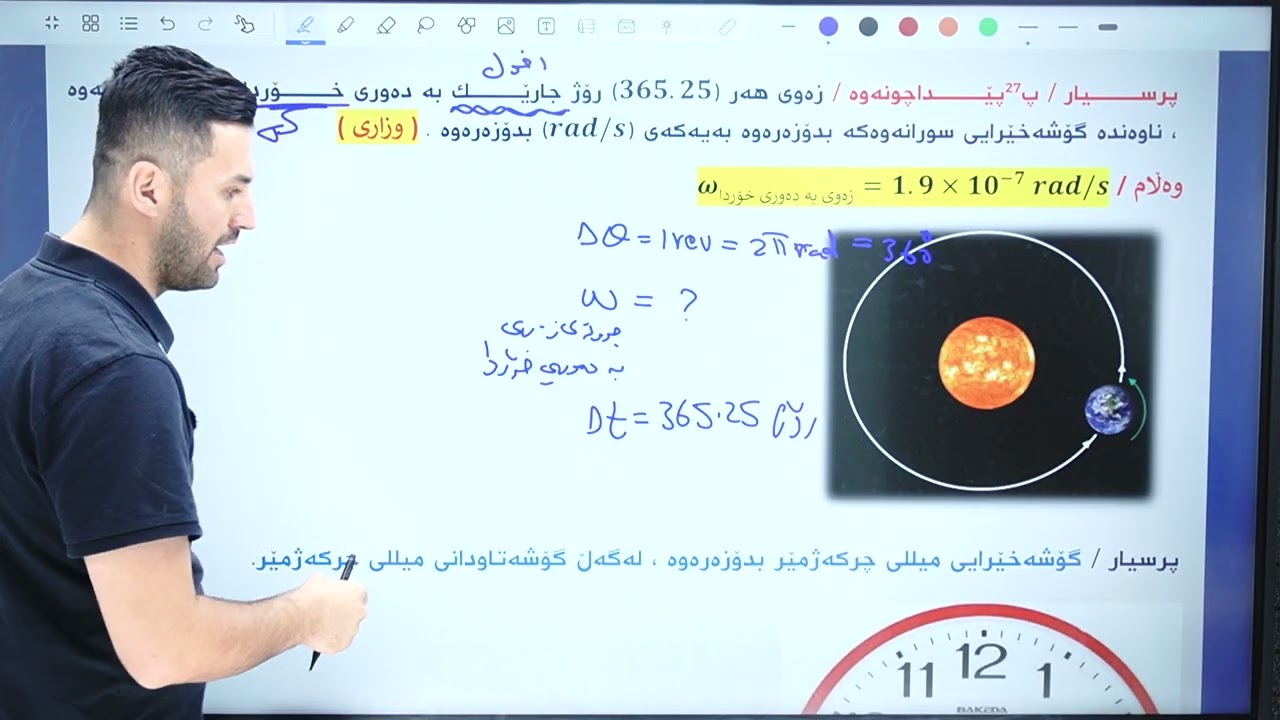 اخول
پرسیار / پ27پێداچونەوە / زەوی هەر (365.25) رۆژ جارێك بە دەوری
، ناوەندە گۆشەخێرایی سورانەوەکە بدۆزەرەوە بەیەکەی (rad/s) بدۆزەرەوە . ( وزاری )
وەڵام / ω زەوی بە دەوری خۆردا = 1.9 × 10⁻⁷ rad/s
Δθ = 1rev = 2π rad = 360°
ω = ?
بە دەوری خۆردا
Δt = 365.25 رۆژ
پرسیار / گۆشەخێرایی میللی چرکەژمێر بدۆزەرەوە ، لەگەڵ گۆشەتاودانی میللی چرکەژمێر.
11 12 1
BAKEDA